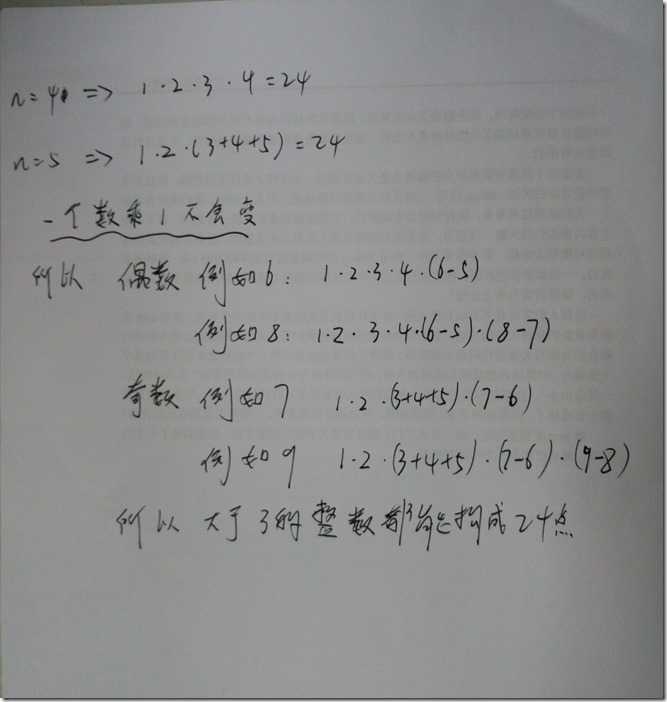 n=4 => 1·2·3·4=24
n=5 => 1·2·(3+4+5)=24
一个数乘1不会变
所以 偶数 例如6: 1·2·3·4·(6-5)
例如8: 1·2·3·4·(6-5)·(8-7)
奇数 例如7 1·2·(3+4+5)·(7-6)
例如9 1·2·(3+4+5)·(7-6)·(9-8)
所以大于3的整数都能构成24点